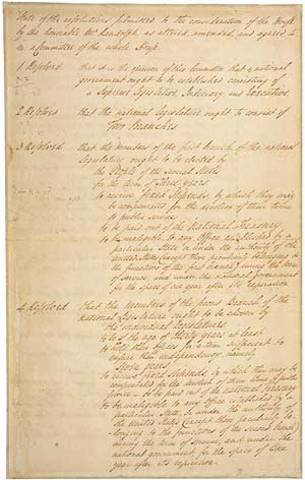 State of the resolutions submitted to the consideration of the House
by the honorable Mr. Randolph, as altered, amended, and agreed to
in a Committee of the whole House.
1 Resolved that it is the opinion of this Committee that a national
government ought to be established consisting of
a Supreme Legislative, Judiciary, and Executive.
2 Resolved that the national Legislature ought to consist of
Two Branches.
3 Resolved that the members of the first branch of the national
Legislature ought to be elected by
the People of the several States
for the term of Three years.
to receive fixed stipends, by which they may
be compensated for the devotion of their time
to public service
to be paid out of the National Treasury.
to be ineligible to any Office established by a
particular State or under the authority of the
united States (except those peculiarly belonging to
the functions of the first branch) during the term
of service, and under the national government
for the space of one year after its expiration.
4 Resolved that the members of the second Branch of the
national Legislature ought to be chosen by
the individual Legislatures
to be of the age of thirty years at least.
to hold their offices for a term sufficient to
ensure their independency, namely
seven years.
to receive fixed stipends, by which they may be
compensated for the devotion of their time to public
service - to be paid out of the National Treasury
to be ineligible to any Office established by a
particular State, or under the authority of
the united States (except those peculiarly be-
longing to the functions of the second branch)
during the term of service, and under the
national government, for the space of one
year after its expiration.